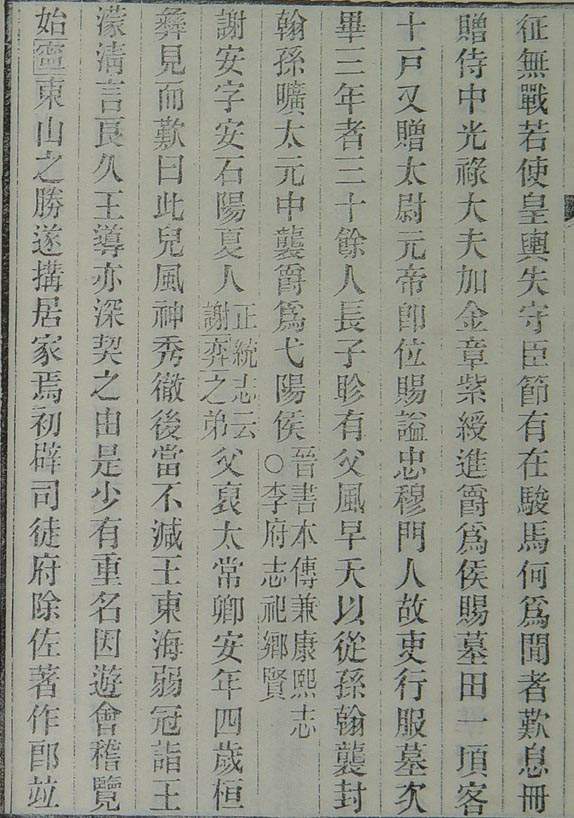 征無戰若使皇輿失守臣節有在駿馬何爲聞者歎息冊
贈侍中光祿大夫加金章紫綬進爵爲侯賜墓田一頃客
十戸又贈太尉元帝卽位賜謚忠穆門人故吏行服墓次
畢三年者三十餘人長子眕有父風早夭以從孫翰襲封
翰孫曠太元中襲爵爲弋陽侯晉書本傳兼康熙志○李府志祀鄉賢
謝安字安石陽夏人正統志云謝弈之弟父裒太常卿安年四歲桓
彝見而歎曰此兒風神秀徹後當不減王東海弱冠詣王
濛淸言良久王導亦深契之由是少有重名因遊會稽覽
始寧東山之勝遂搆居家焉初辟司徒府除佐著作郎竝